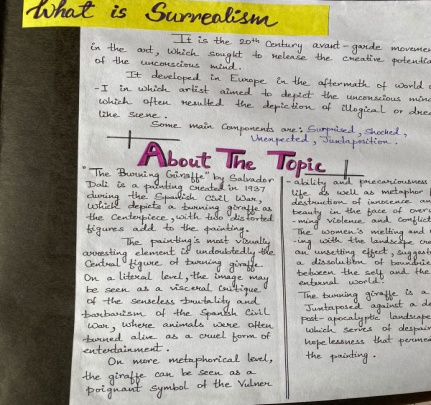 What is Surrealism
It is the 20th Century avant-garde
in the art, which sought to release the creative
of the unconscious mind.
It developed in Europe in the aftermath of world
-I in which artist aimed to depict the unconscious
which often resulted the depiction of illogical or
like scene.
Some main Components are: Surprised, Shocked,
Unexpected, Juxtaposition.
About The Topic
"The Burning Giraffe" by Salvador
Dali is a painting created in 1937
during the Spanish Civil War,
which depicts a burning giraffe as
the Centerpiece, with two distorted
figures add to the painting.
The painting's most visually
arresting element is undoubtedly the
Central figure of burning giraffe.
On a literal level, the image may
be seen as a visceral critique
of the senseless brutality and
barbarism of the Spanish Civil
War, where animals were often
burned alive as a cruel form of
entertainment.
On more metaphorical level,
the giraffe can be seen as a
poignant symbol of the Vulner
-ability and precariousness
life as well as metaphor
destruction of innocence
beauty in the face of
-ming violence and Conflict
The women's melting and
-ing with the landscape
an unsetting effect,
a dissolution of
between the self and the
external world.
The burning giraffe is a
Juxtaposed against a
post-apocalyptic landscape
which serves of despair
hopelessness that
the painting.